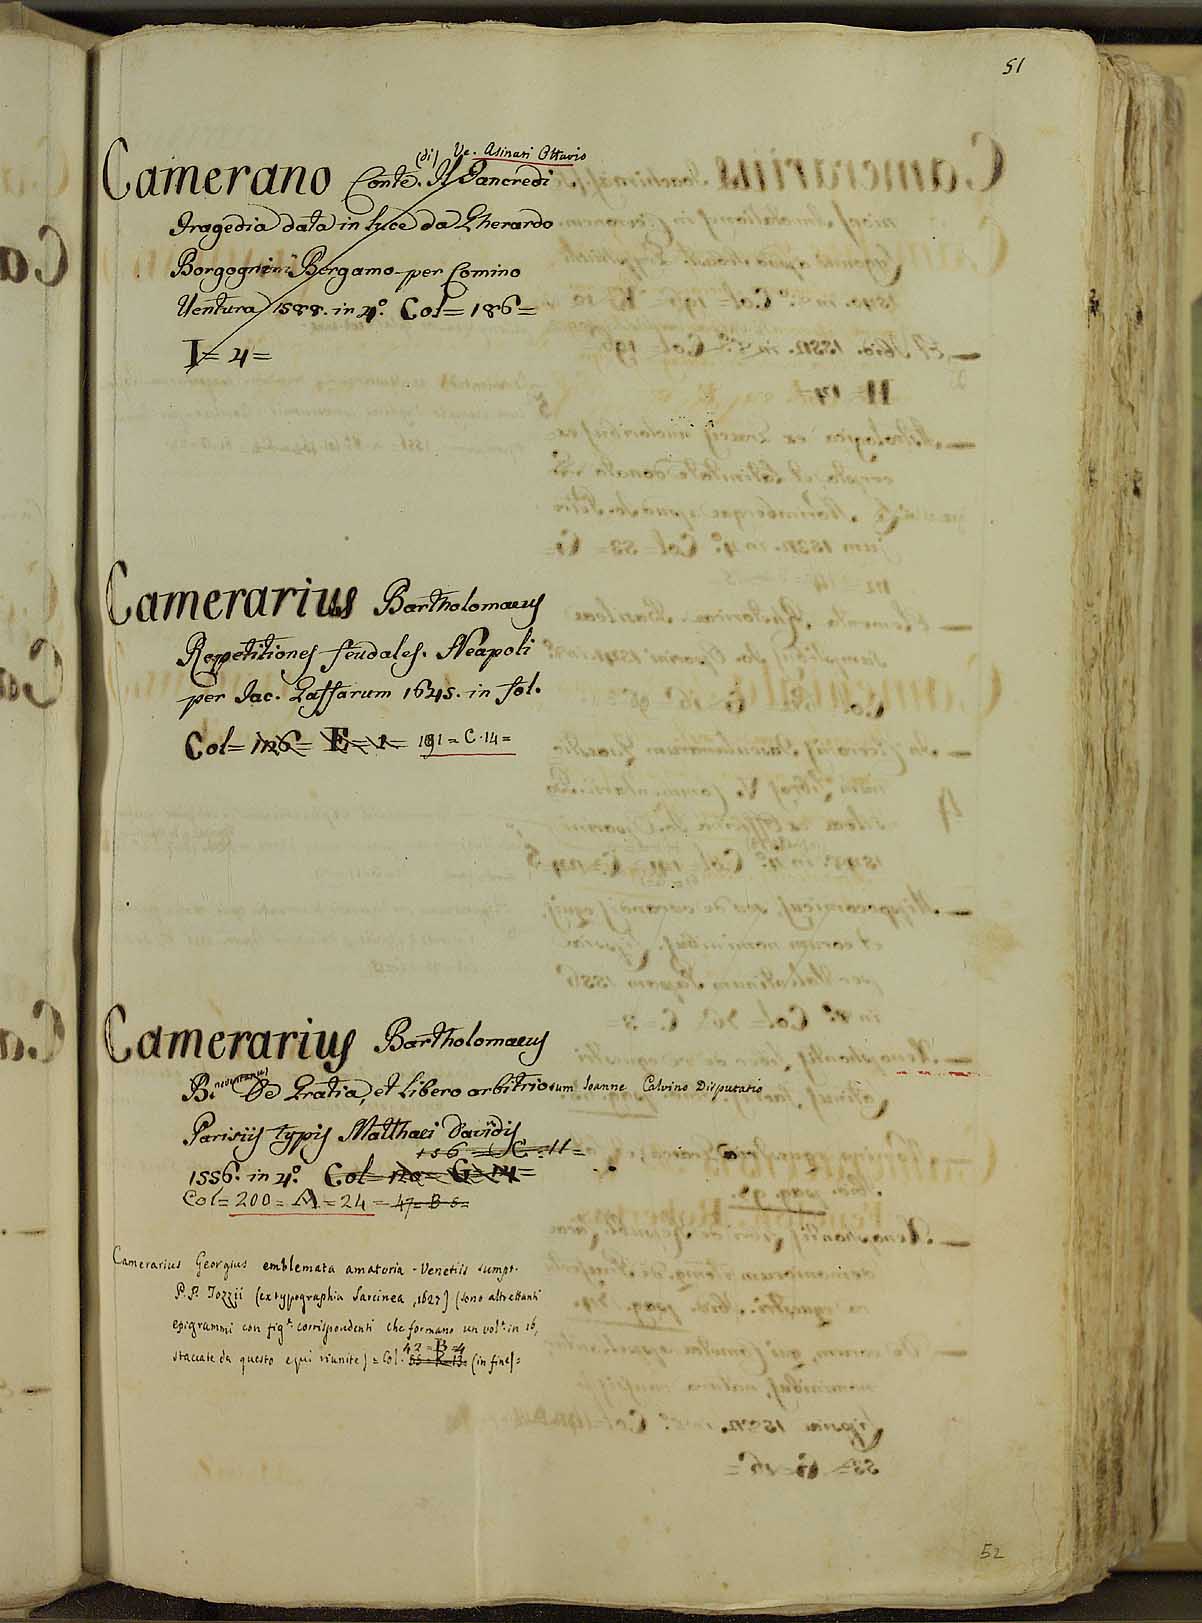 51
(di) Ve. Asinari Ottavio
Camerano Conte. Il Tancredi
Tragedia data in luce da Gherardo
Borgognini Bergamo per Comino
Ventura 1588. in 4.º Col= 186=
I= 4=
Camerarius Bartholomaeus
Repetitiones feudales. Neapoli
per Jac. Gaffarum 1645. in fol.
Col= 126= E= 2= 191= C. 14=
Camerarius Bartholomaeus
B.neventanus De Gratia, et libero arbitrio cum Joanne Calvino Disputatio
Parisiis typis Matthaei Davidis
156 = C. 11=
1556. in 4.º Col= 120= G= 14=
Col= 200= A= 24= 47= B 5=
Camerarius Georgius emblemata amatoria - Venetiis sumpt.
P. P. Tozzii (ex typographia Sarcinea, 1627) (sono altrettanti
epigrammi con fig.e corrispondenti che formano un vol. in 16,
42 = B 4
staccate da questo e qui riunite) = Col. (in fine)=
52